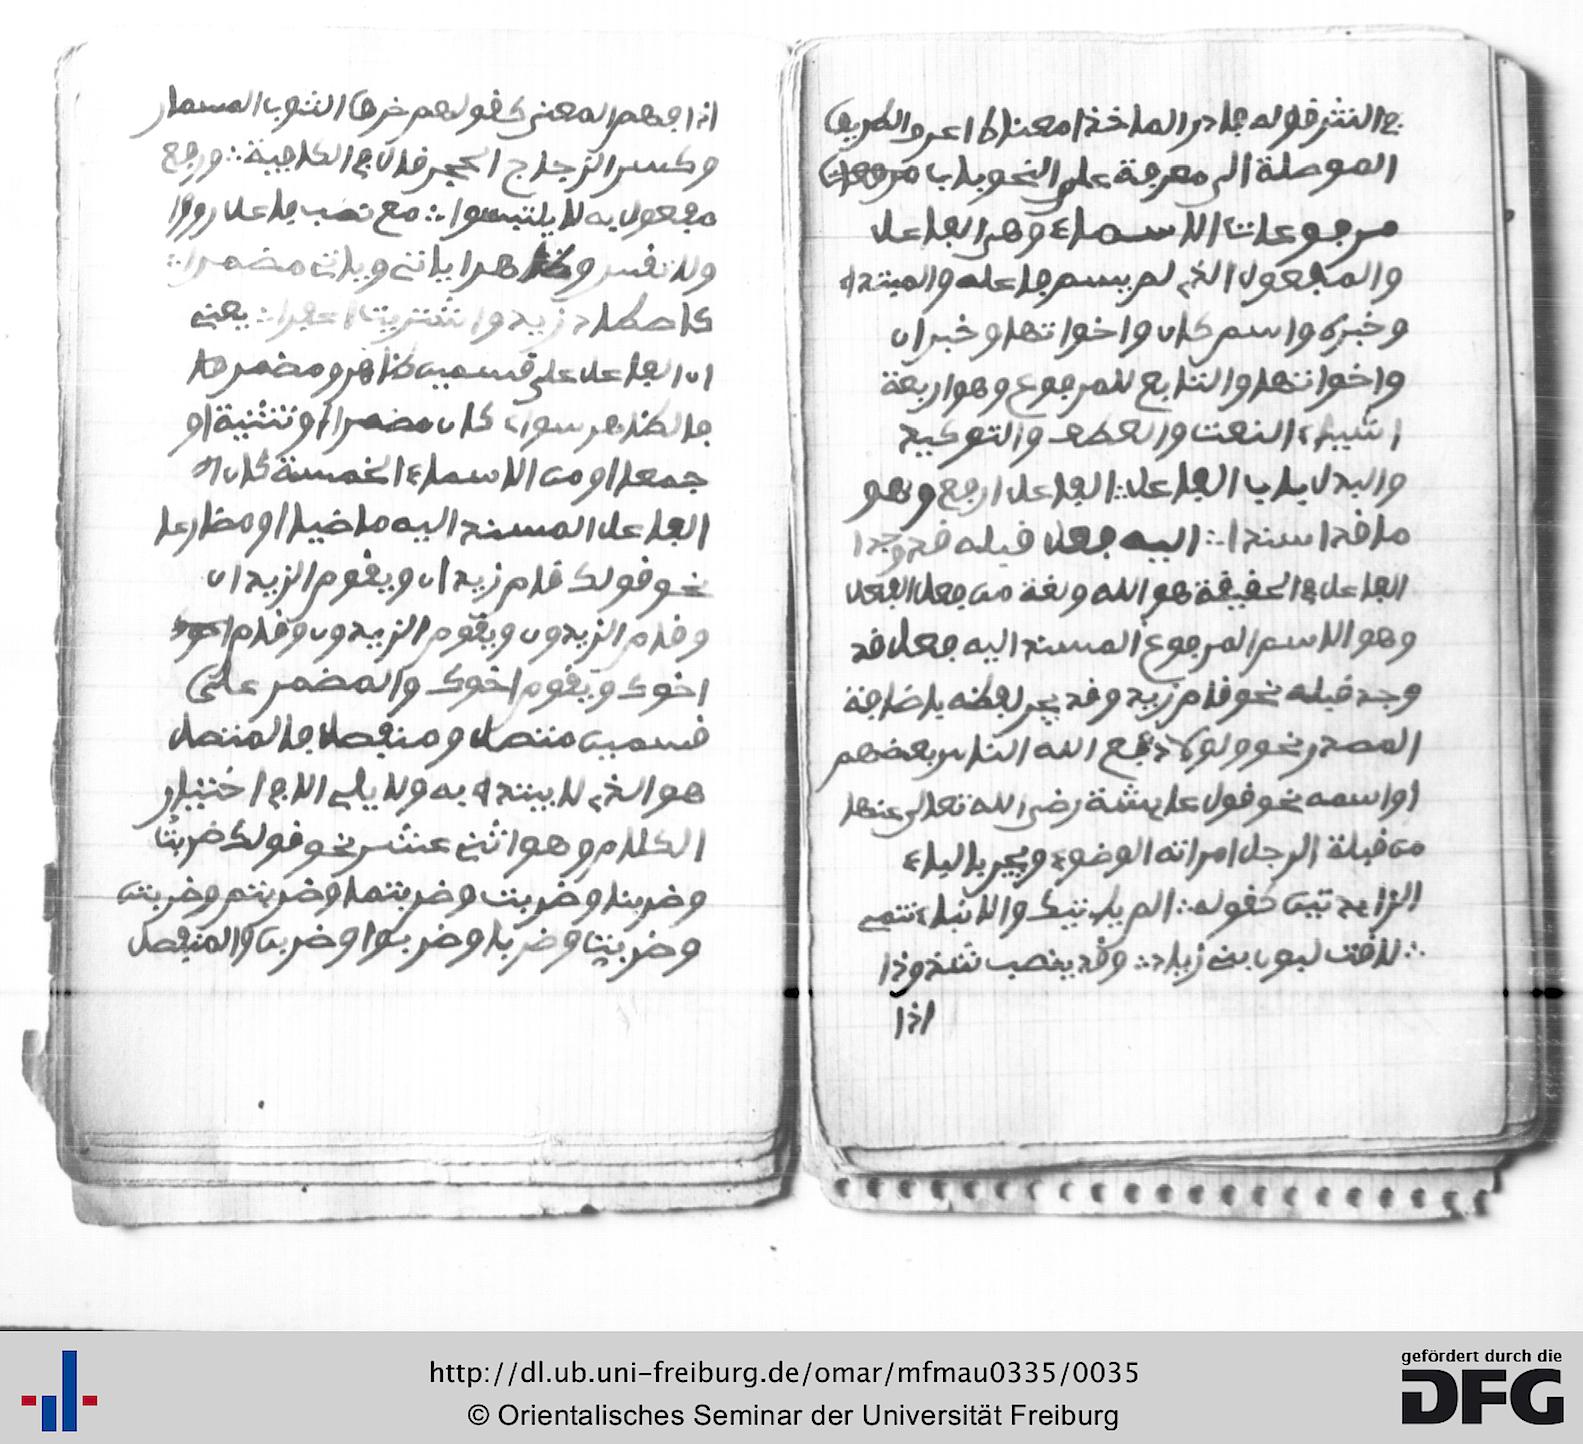 في النشر قوله فادر الماخذا معناه اعرف الطريق
الموصلة الى معرفة علم النحو باب مرفوعات
مرفوعات الاسماء وهي الفاعل
والمفعول الذي لم يسم فاعله والمبتدا
وخبره واسم كان واخواتها وخبر ان
واخواتها والتابع للمرفوع وهو اربعة
اشياء النعت والعطف والتوكيد
والبدل باب الفاعل ∴ الفاعل ارفع وهو
ما قد اسندا ∴ اليه فعل قبله قد وجدا
الفاعل في الحقيقة هو الله ولغة من فعل الفعل
وهو الاسم المرفوع المسند اليه فعل قد
وجد قبله نحو قام زيد وقد يجر لفظه باضافة
المصدر نحو ولولا دفع الله الناس بعضهم
او اسمه نحو قول عايشة رضي الله تعالى عنها
من قبلة الرجل امراته الوضوء ويجر بالباء
الزايدتين كقوله ∴ الم ياتيك والانباء تنمي
∴ لاقت لبون بني زياد ∴ وقد ينصب شذوذا
اذا
اذا فهم المعنى كقولهم خرق الثوب المسمار
وكسر الزجاج الحجر قال في الكافية ∴ ورفع
مفعول به لا يلتبسوا ∴ مع نصب فاعل رووا
ولا تقس وظاهرا ياتي وياتي مضمرا ∴
كاصطاد زيد واشتريت اعفرا ∴ يعني
ان الفاعل على قسمين ظاهر ومضمر
فالظاهر سواء كان مضمرا او تثنية او
جمعا او من الاسماء الخمسة كان
الفاعل المسند اليه ماضيا او مضارعا
نحو قولك قام زيدان ويقوم الزيدان
وقام الزيدون ويقوم الزيدون وقام
اخوك ويقوم اخوك والمضمر على
قسمين متصل ومنفصل فالمتصل
هو الذي لا يبتدا به ولا يلي الا في اختيار
الكلام وهو اثني عشر نحو قولك ضربت
وضربنا وضربت وضربتما وضربتم وضربتن
وضربت وضربا وضربوا وضربن والمنفصل
http://dl.ub.uni-freiburg.de/omar/mfmau0335/0035
© Orientalisches Seminar der Universität Freiburg
gefördert durch die
DFG